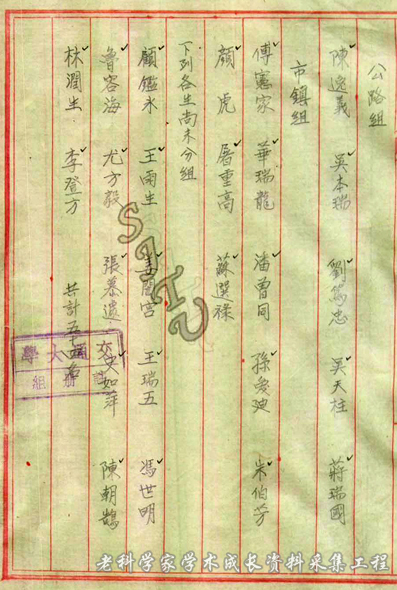 公路組
陳逸義 吳本瑞 劉篤忠 吳天柱 蔣瑞國
市鎮組
傅憲家 華瑞龍 潘曾同 孫愛廸 朱伯芳
顏虎 屠重高 蘇選祿
下列各生尚未分組
顧鑑永 王雨生 宮 王瑞五 馮世明
魯容海 尤方毅 張慕遺 如萍 陳朝鵠
林潤生 李登方 共計五十 名
交通大學
註冊組
SJTU
老科学家学术成长资料采集工程